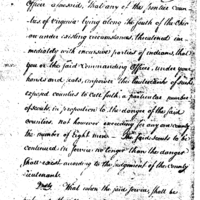 Officer aforesaid, that any of the frontier Coun-
ties of Virginia lying along the south of the Ohio
are under existing circumstances threatened im-
mediately with incursive parties of indians, that
you or the said Commanding Officer, under your
hands and seals, empower the Lieutenants of such
exposed counties to call forth a particular number
of scouts in proportion to the danger of the said
counties, not however exceeding for any one county
the number of Eight men. The said scouts to be
continued in service no longer than the danger
shall exist according to the judgement of the county
Lieutenants.
that when the said service shall be